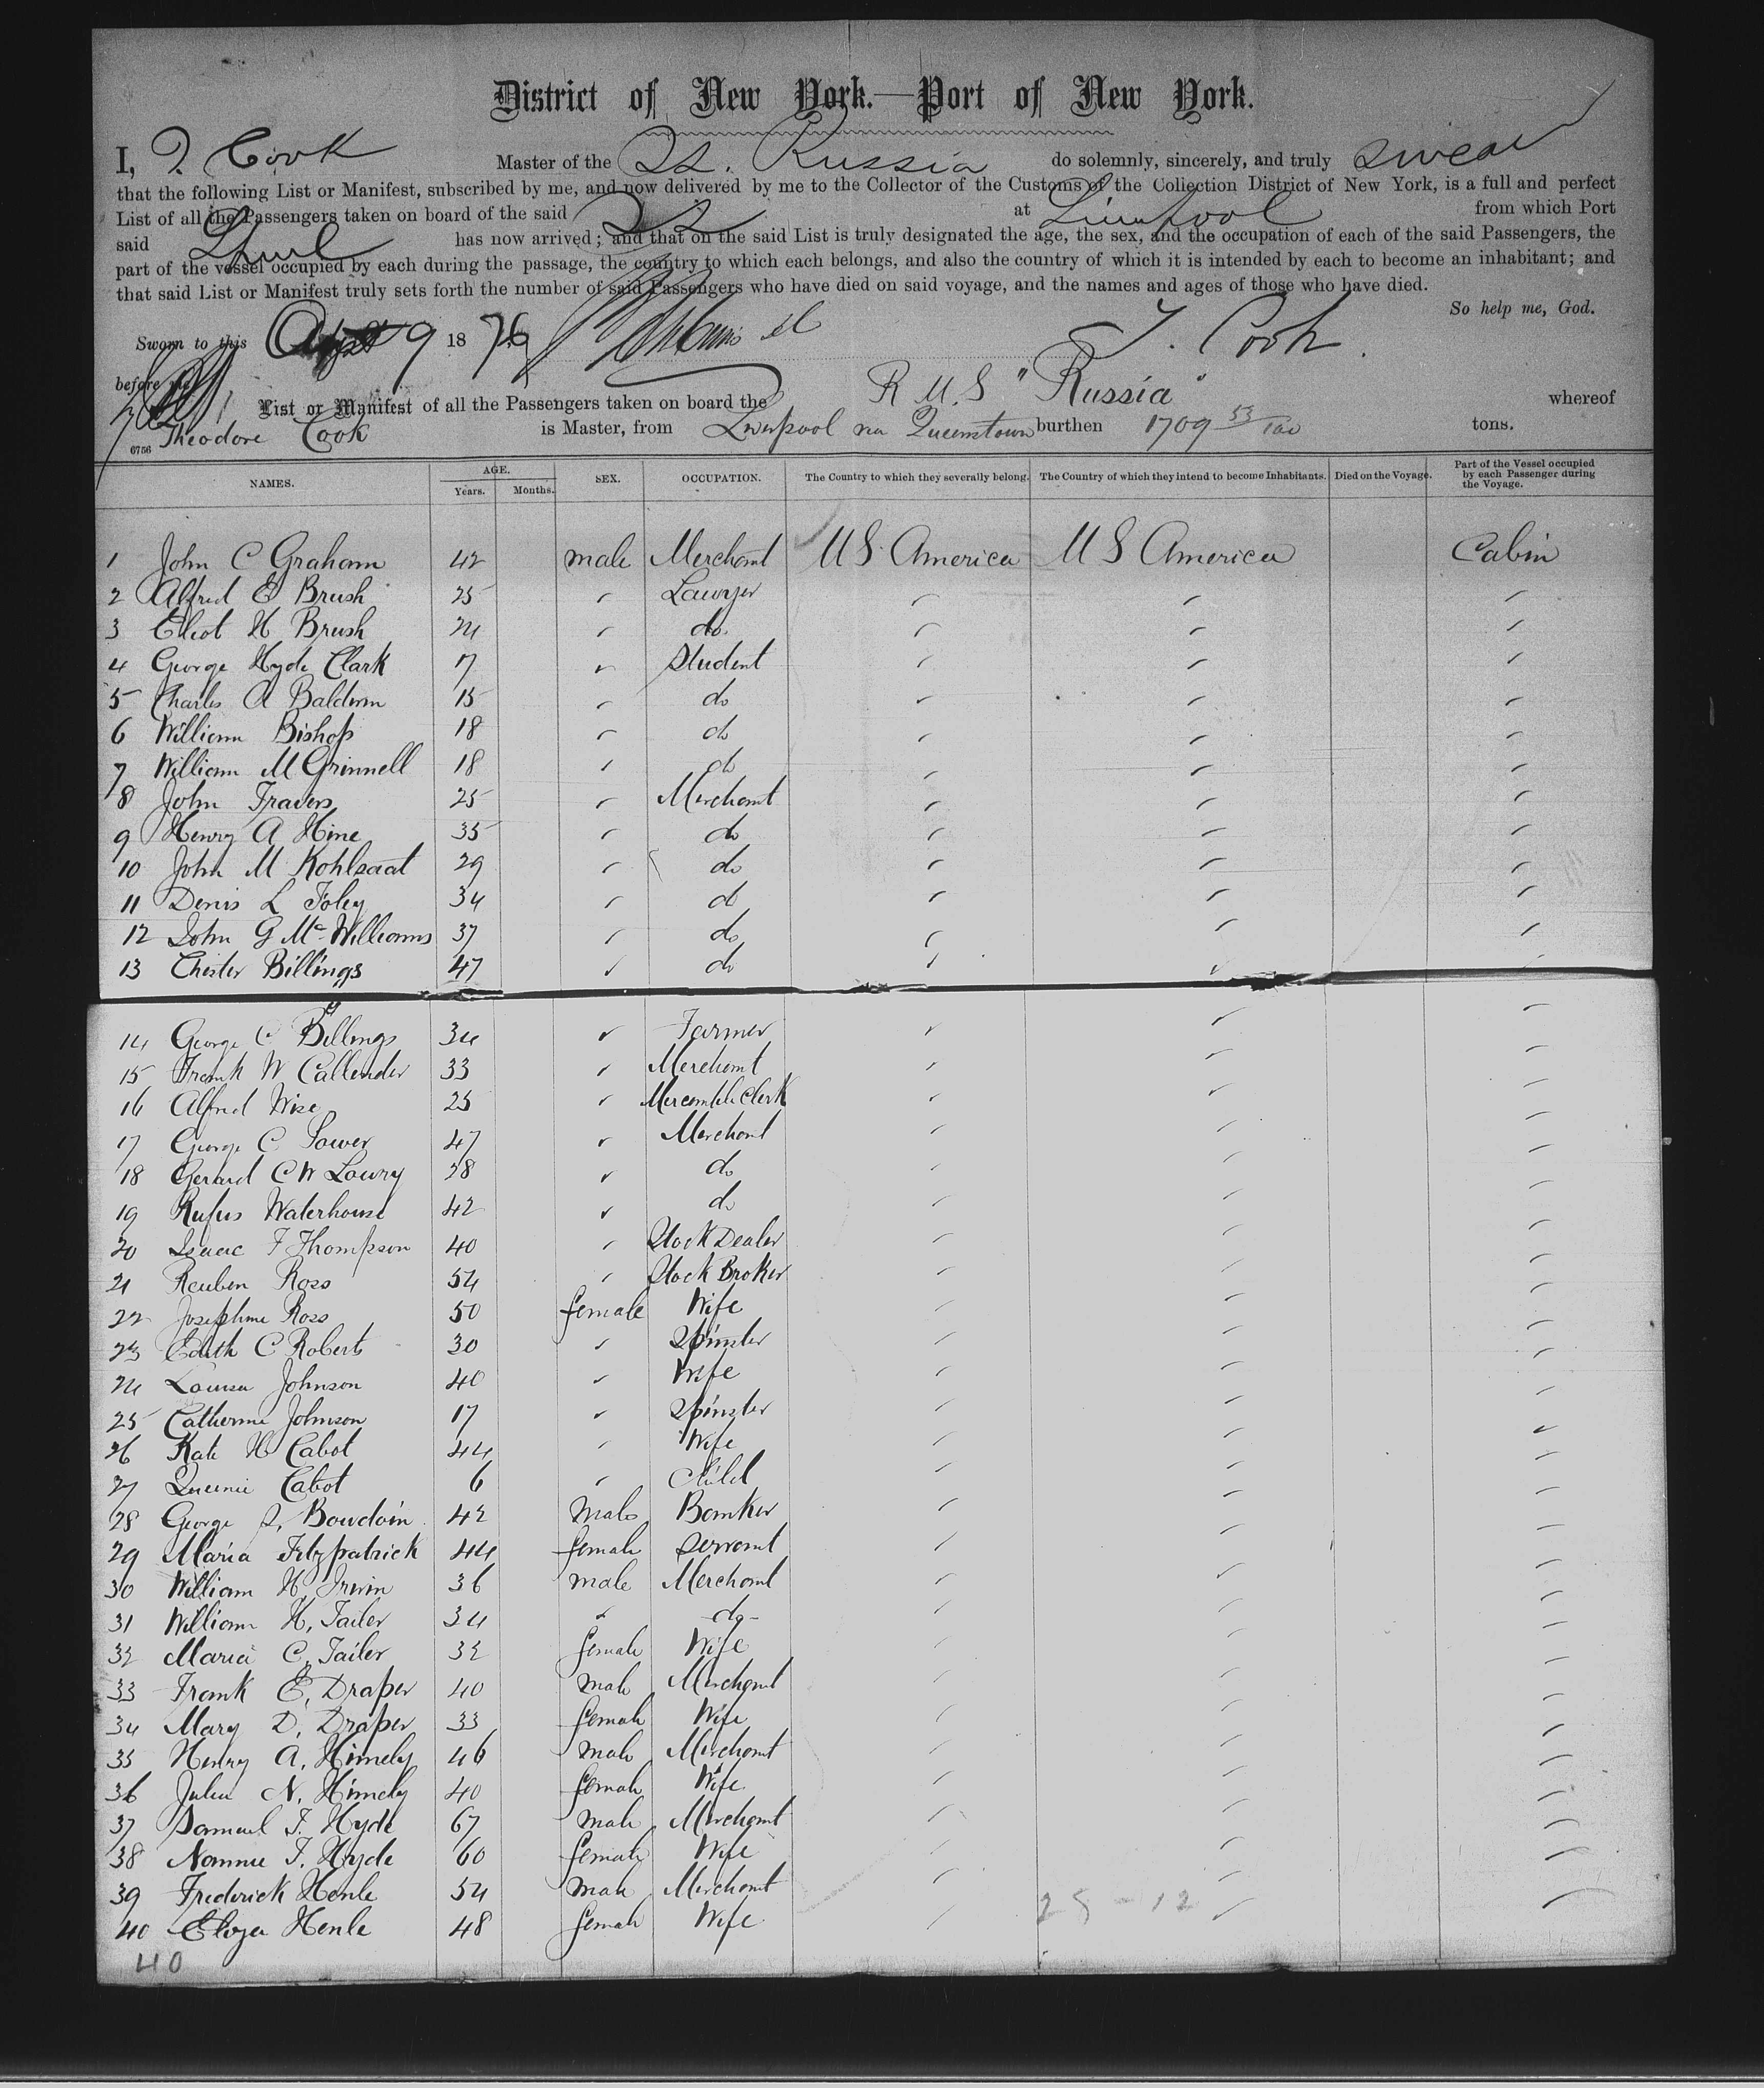 District of New York.—Port of New York.
I, T. Cook Master of the SS. Russia do solemnly, sincerely, and truly swear
that the following List or Manifest, subscribed by me, and now delivered by me to the Collector of the Customs of the Collection District of New York, is a full and perfect
List of all the Passengers taken on board of the said SS at Liverpool from which Port
said has now arrived; and that on the said List is truly designated the age, the sex, and the occupation of each of the said Passengers, the
part of the vessel occupied by each during the passage, the country to which each belongs, and also the country of which it is intended by each to become an inhabitant; and
that said List or Manifest truly sets forth the number of said Passengers who have died on said voyage, and the names and ages of those who have died.
So help me, God.
Sworn to this 9 1876 T. Cook
before me
List or Manifest of all the Passengers taken on board the R M S "Russia" whereof
6756 Theodore Cook is Master, from Liverpool via Queenstown burthen 1709 53/100 tons.
NAMES. AGE. Years. Months. SEX. OCCUPATION. The Country to which they severally belong. The Country of which they intend to become Inhabitants. Died on the Voyage. Part of the Vessel occupied by each Passenger during the Voyage.
1 John C Graham 42 male Merchant U S America U S America Cabin
2 Alfred E Brush 25 " Lawyer " " "
3 Eliot H Brush 24 " do. " " "
4 George Hyde Clark 17 " Student " " "
5 Charles A Baldwin 15 " do " " "
6 William Bishop 18 " do " " "
7 William M Grinnell 18 " do " " "
8 John Travers 25 " Merchant " " "
9 Henry A Hine 35 " do " " "
10 John M Kohlsaat 29 " do " " "
11 Denis L Foley 34 " do " " "
12 John G Mc Williams 37 " do " " "
13 Chester Billings 47 " do " " "
14 George C Billings 34 " Farmer " " "
15 Frank W Callender 33 " Merchant " " "
16 Alfred Wise 25 " Mercantile Clerk " " "
17 George C Sower 47 " Merchant " " "
18 Gerard C W Lowry 28 " do " " "
19 Rufus Waterhouse 42 " do " " "
20 Isaac F Thompson 40 " Stock Dealer " " "
21 Reuben Ross 54 " Stock Broker " " "
22 Josephine Ross 50 female Wife " " "
23 Edith C Roberts 30 " Spinster " " "
24 Louisa Johnson 40 " Wife " " "
25 Catherine Johnson 17 " Spinster " " "
26 Kate H Cabot 44 " Wife " " "
27 Queenie Cabot 6 " Child " " "
28 George S. Bowdoin 42 male Banker " " "
29 Maria Fitzpatrick 44 female Servant " " "
30 William H Irwin 36 male Merchant " " "
31 William H. Tailer 34 " do- " " "
32 Maria C. Tailer 32 female Wife " " "
33 Frank E. Draper 40 male Merchant " " "
34 Mary D. Draper 33 female Wife " " "
35 Henry A. Himely 46 male Merchant " " "
36 Julia N. Himely 40 female Wife " " "
37 Samuel T. Hyde 67 male Merchant " " "
38 Nannie T. Hyde 60 female Wife " " "
39 Frederick Henle 54 male Merchant " " "
40 Henle 48 female Wife " " "
40